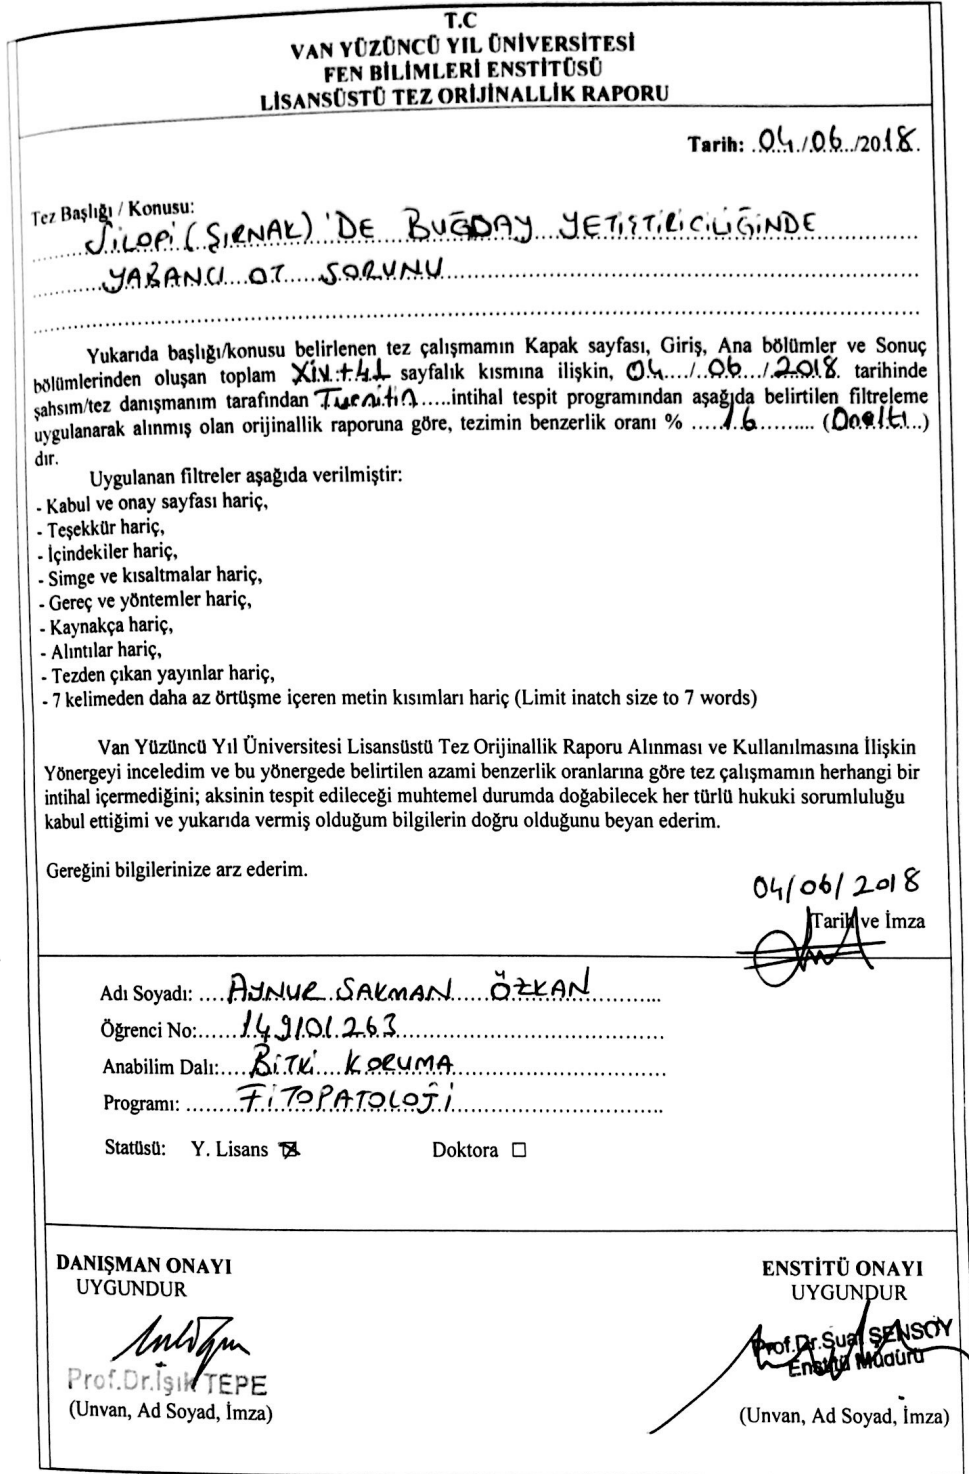 T.C
VAN YÜZÜNCÜ YIL ÜNİVERSİTESİ
FEN BİLİMLERİ ENSTİTÜSÜ
LİSANSÜSTÜ TEZ ORİJİNALLİK RAPORU
Tarih: 04/06/2018.
Tez Başlığı / Konusu:
SİLOPİ (ŞIRNAK)'DE BUĞDAY YETİŞTİRİCİLİĞİNDE
YABANCI OT SORUNU
Yukarıda başlığı/konusu belirlenen tez çalışmamın Kapak sayfası, Giriş, Ana bölümler ve Sonuç
bölümlerinden oluşan toplam XIV+41 sayfalık kısmına ilişkin, 04/06/2018 tarihinde
şahsım/tez danışmanım tarafından Turnitin.....intihal tespit programından aşağıda belirtilen filtreleme
uygulanarak alınmış olan orijinallik raporuna göre, tezimin benzerlik oranı % .....16......... (Onaltı...)
dır.
Uygulanan filtreler aşağıda verilmiştir:
- Kabul ve onay sayfası hariç,
- Teşekkür hariç,
- İçindekiler hariç,
- Simge ve kısaltmalar hariç,
- Gereç ve yöntemler hariç,
- Kaynakça hariç,
- Alıntılar hariç,
- Tezden çıkan yayınlar hariç,
- 7 kelimeden daha az örtüşme içeren metin kısımları hariç (Limit inatch size to 7 words)
Van Yüzüncü Yıl Üniversitesi Lisansüstü Tez Orijinallik Raporu Alınması ve Kullanılmasına İlişkin
Yönergeyi inceledim ve bu yönergede belirtilen azami benzerlik oranlarına göre tez çalışmamın herhangi bir
intihal içermediğini; aksinin tespit edileceği muhtemel durumda doğabilecek her türlü hukuki sorumluluğu
kabul ettiğimi ve yukarıda vermiş olduğum bilgilerin doğru olduğunu beyan ederim.
Gereğini bilgilerinize arz ederim.
04/06/2018
Tarih ve İmza
Adı Soyadı: ....AYNUR SAKMAN ÖZKAN
Öğrenci No:......149101263
Anabilim Dalı:....BİTKİ KORUMA
Programı: ........FİTOPATOLOJİ
Statüsü: Y. Lisans ☒ Doktora ☐
DANIŞMAN ONAYI
UYGUNDUR
Prof.Dr.Işık TEPE
(Unvan, Ad Soyad, İmza)
ENSTİTÜ ONAYI
UYGUNDUR
Prof.Dr.Suat ŞENSOY
Enstitü Müdürü
(Unvan, Ad Soyad, İmza)